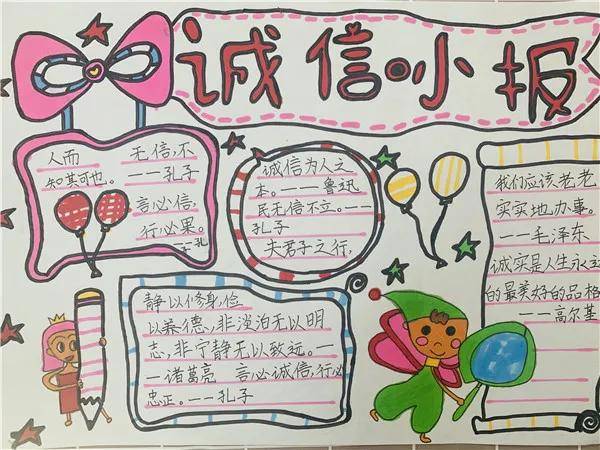 诚信小报
人而 无信,不
知其可也。——孔子
言必信,
行必果。
——孔
诚信为人之
本。———鲁迅
民无信不立。——
孔子
夫君子之行,
静以修身,俭
以养德,非淡泊无以明
志,非宁静无以致远。—
—诸葛亮 言必诚信,行必
忠正。——孔子
我们应该老老
实实地办事。
——毛泽东
诚实是人生永立
的最美好的品格
——高尔基